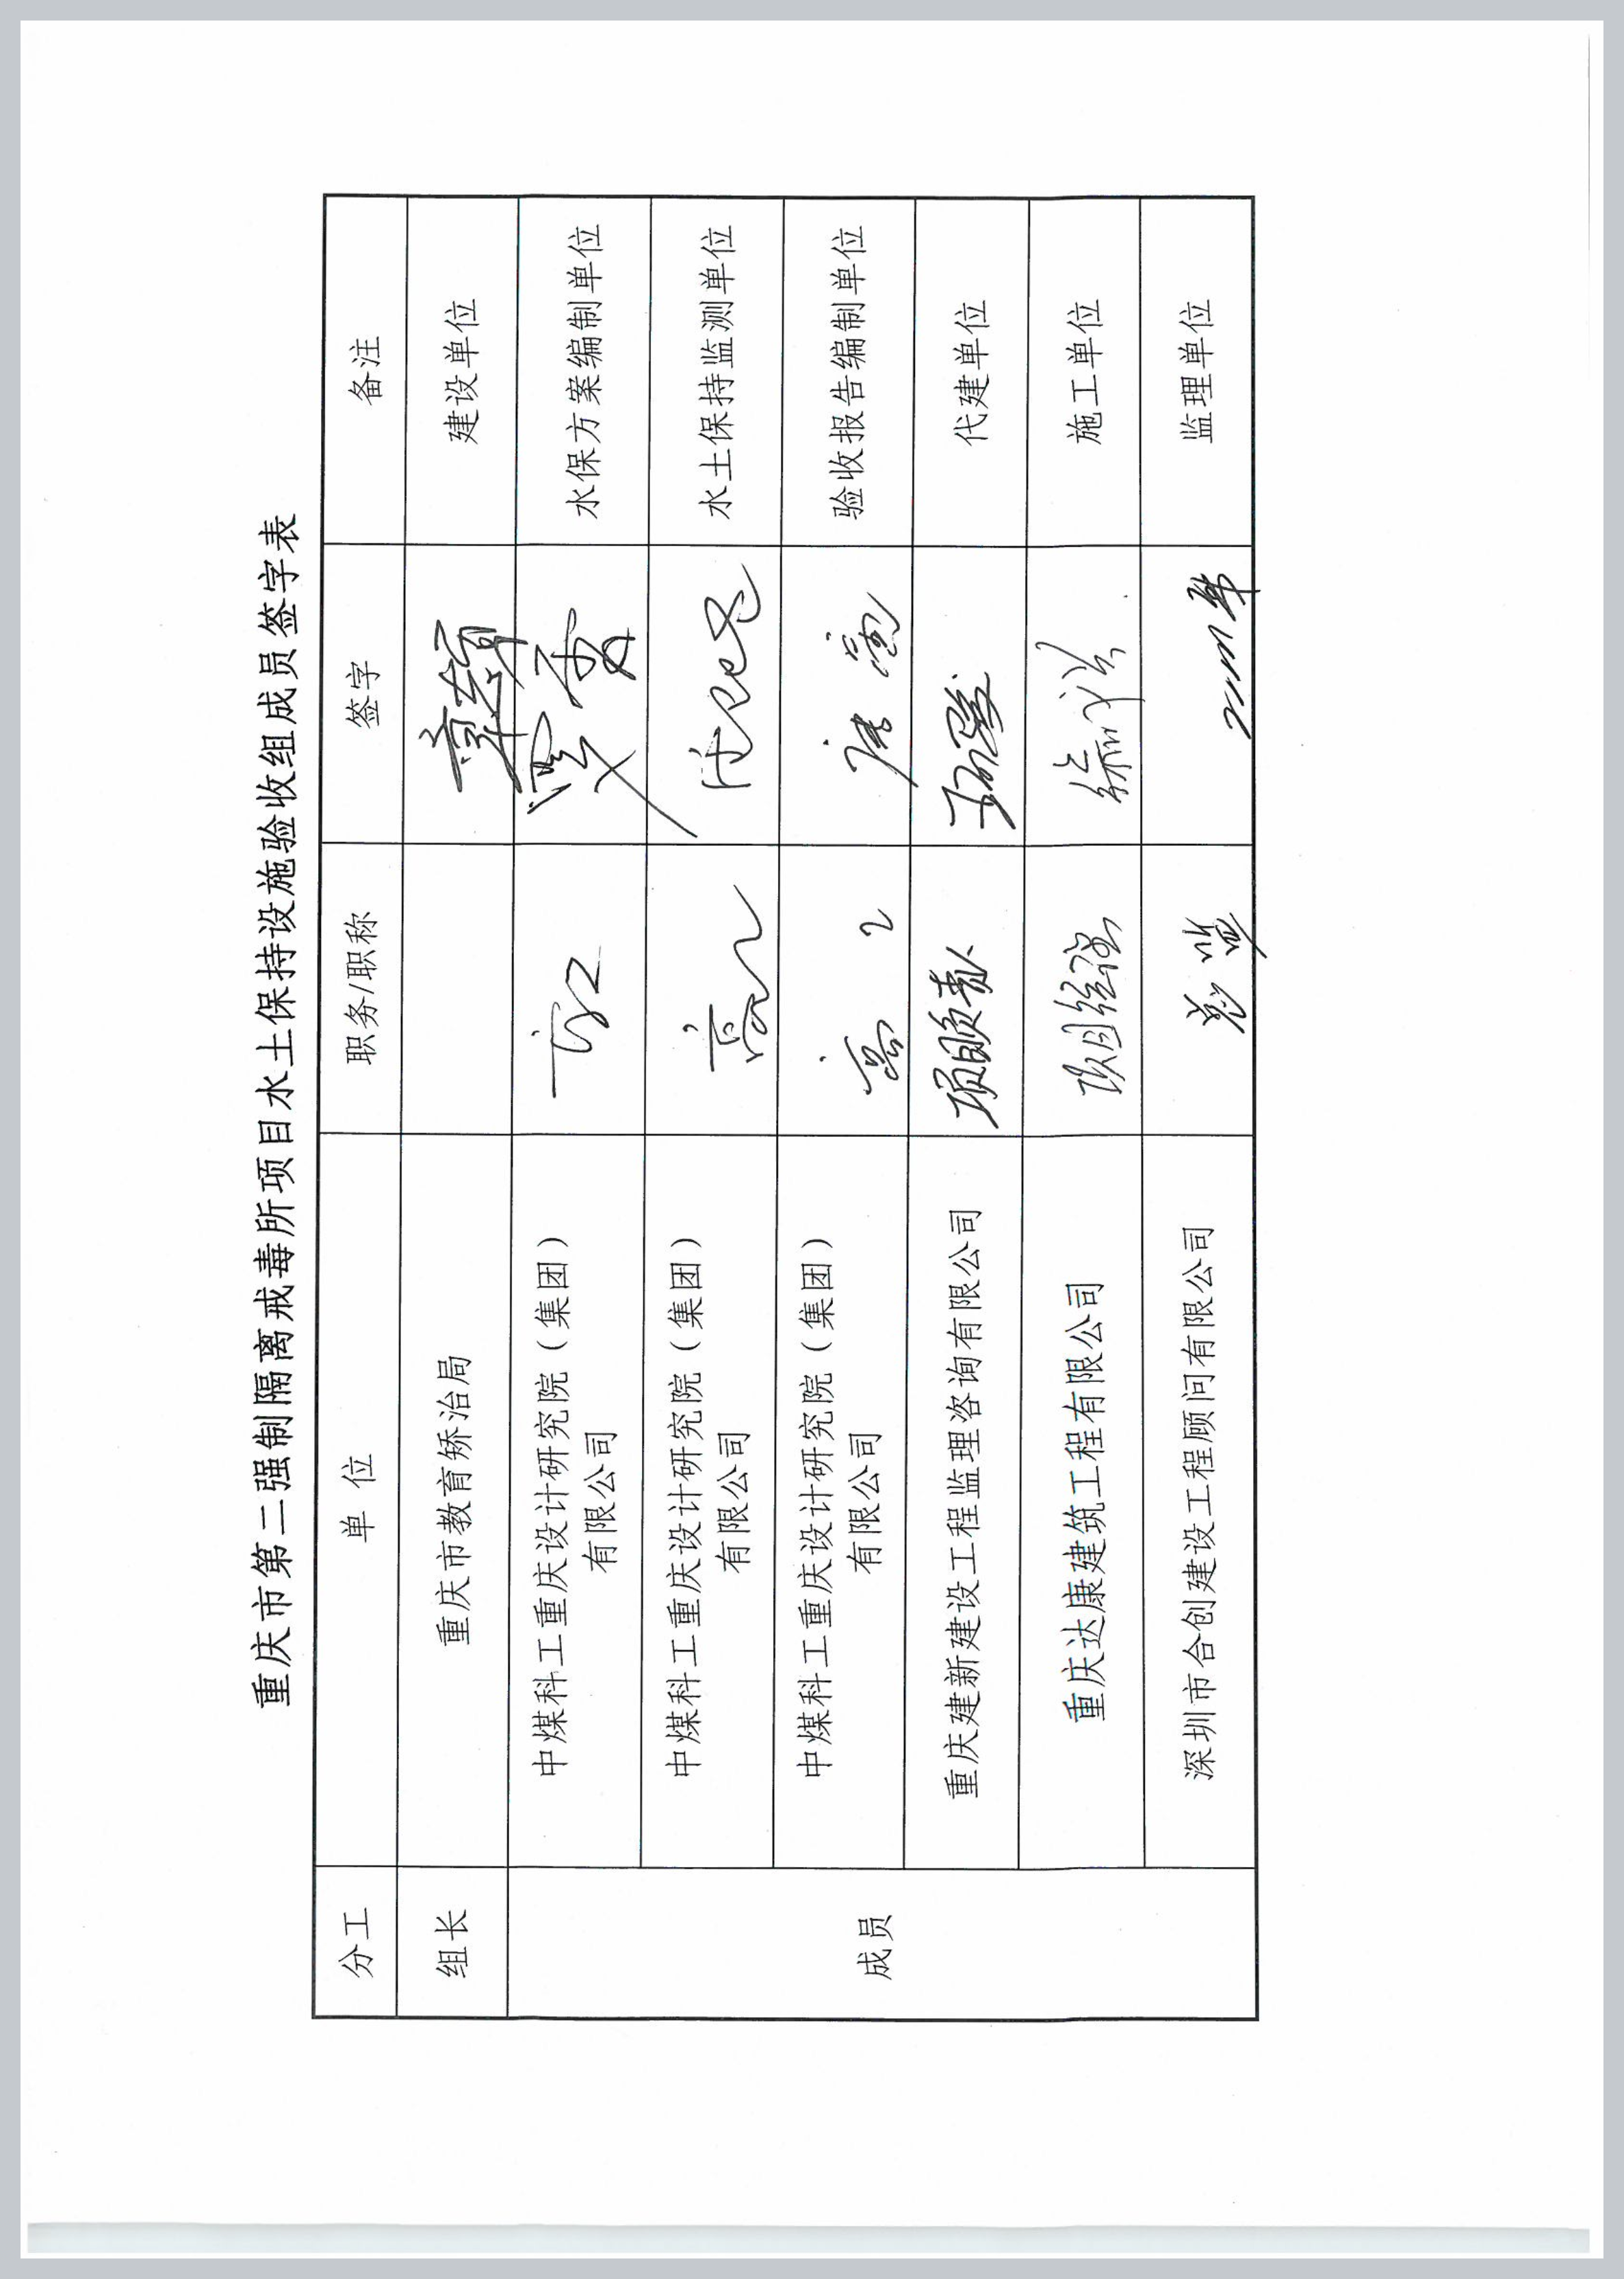 重庆市第二强制隔离戒毒所项目水土保持设施验收组成员签字表
分工 单 位 职务/职称 签字 备注
组长 重庆市教育矫治局 建设单位
成员
中煤科工重庆设计研究院（集团）
有限公司
水保方案编制单位
中煤科工重庆设计研究院（集团）
有限公司
高工
水土保持监测单位
中煤科工重庆设计研究院（集团）
有限公司
高工
验收报告编制单位
重庆建新建设工程监理咨询有限公司 代建单位
重庆达康建筑工程有限公司 施工单位
深圳市合创建设工程顾问有限公司 总监 监理单位